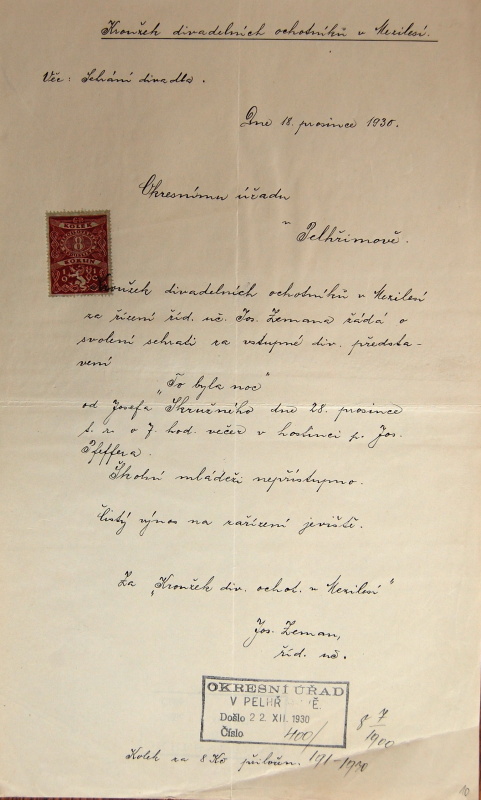 Kroužek divadelních ochotníků v Mezilesí.
Věc: Sehrání divadla.
Dne 18. prosince 1930.
Okresnímu úřadu
v
Pelhřimově.
KOLEK
8
KORUN
Kroužek divadelních ochotníků v Mezilesí
za řízení říd. uč. Jos. Zemana žádá o
svolení sehrati za vstupné div. předsta-
vení
"To byla noc"
od Josefa Skružného dne 28. prosince
t. r. o 7. hod. večer v hostinci p. Jos.
Pfeffera.
Školní mládeži nepřístupno.
Čistý výnos na zařízení jeviště.
Za "Kroužek div. ochot. v Mezilesí"
Jos. Zeman,
říd. uč.
OKRESNÍ ÚŘAD
V PELHŘ
Došlo 22. XII. 1930
Číslo 400/
8 7/1900
Kolek za 8 Kč přiložen.
10